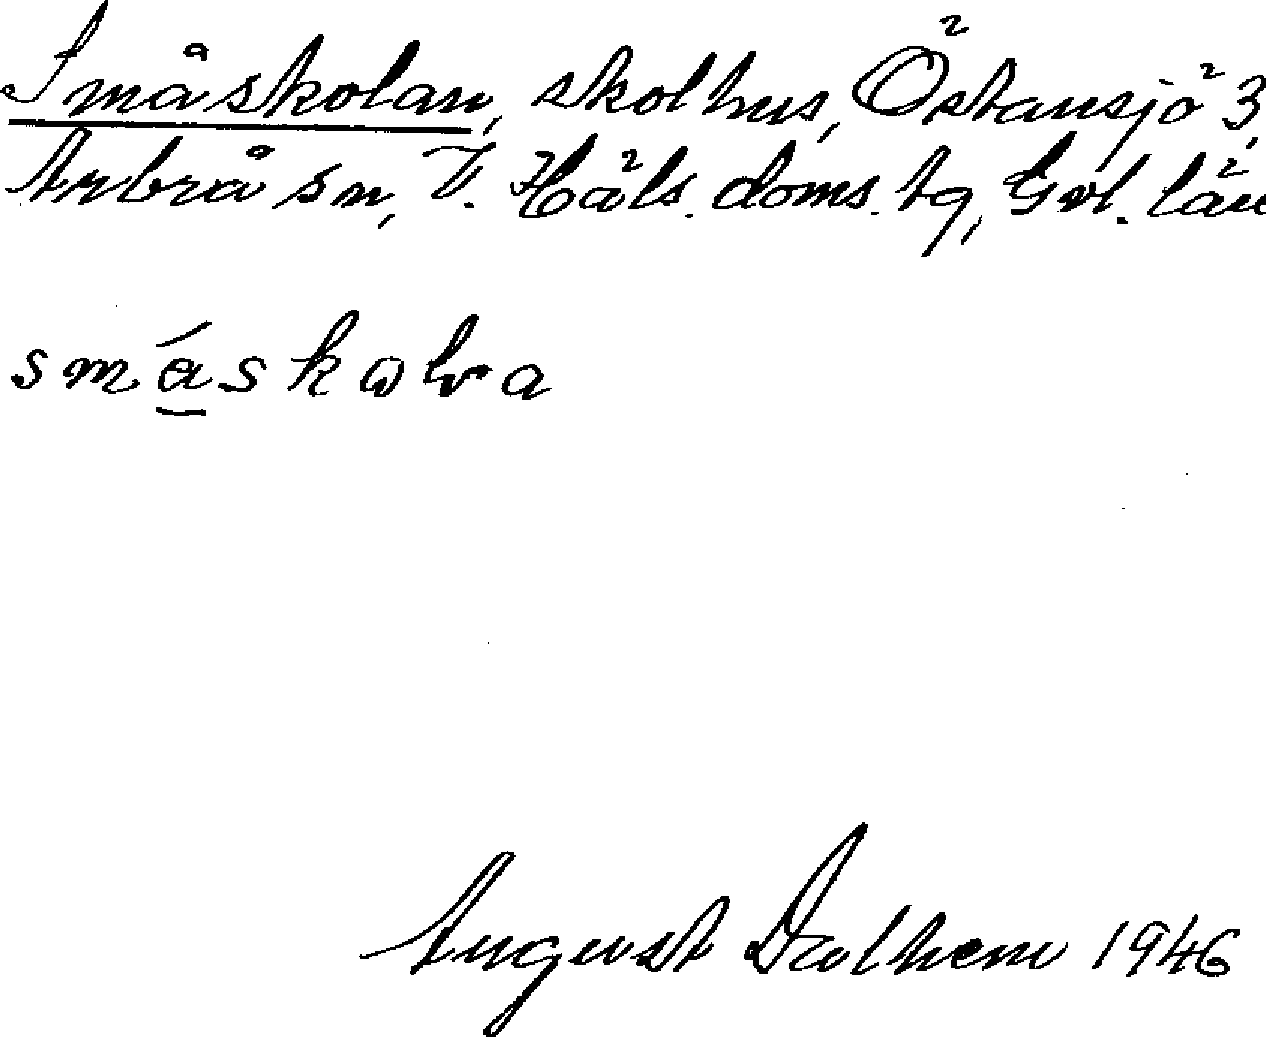 Småskolan, skolhus, Östansjö 3,
Arbrå sn, V. Häls. doms. tg, Gvl. län
småskolra
August Dalhem 1946